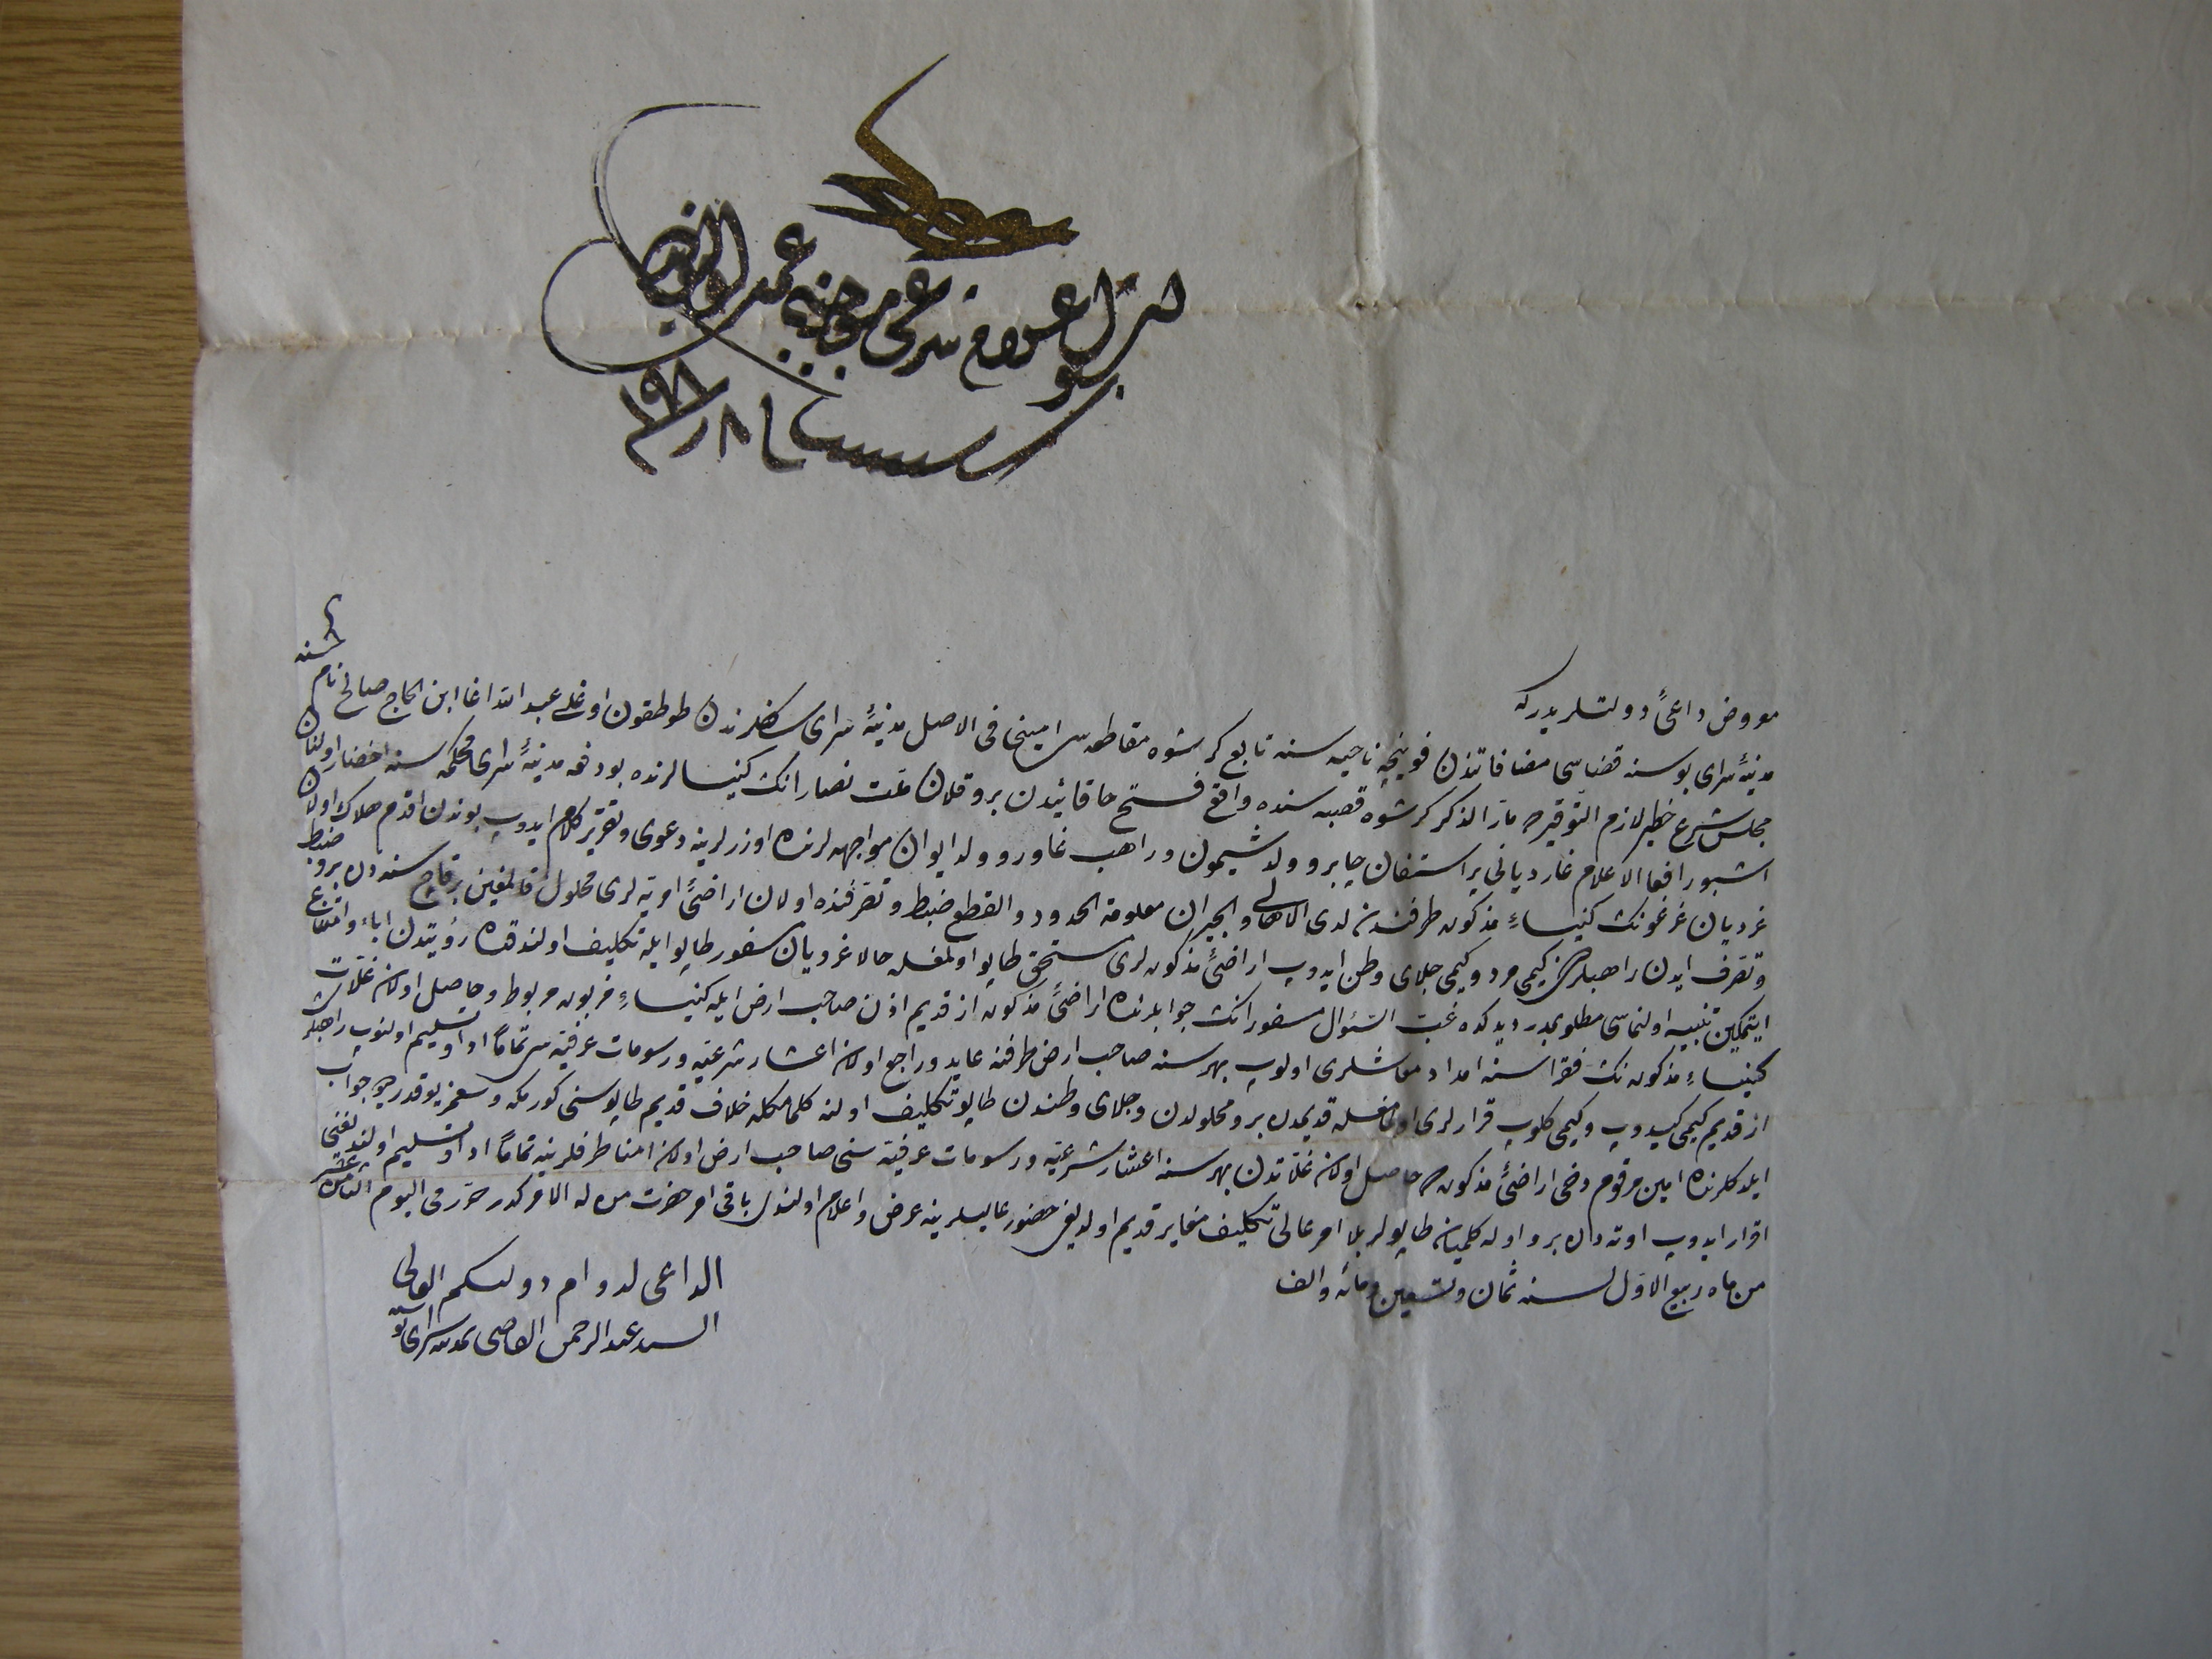 اشبو اعلام شرعى موجبنجه عمل اولنه
٨ را ١١٩٨
معروض داعئ دولتلريدر كه
مدينۀ سراى بوسنه قضاسى مضافاتندن فوينيچه ناحيه سنه تابع كرشوه مقاطعه سى امينى فى الاصل مدينۀ سراى سكنه لرندن طوطقون اوغلى عبد الله اغا ابن الحاج صالح نام كمسنه
مجلس شرع خطير لازم التوقيره مار الذكر كرشوه قصبه سنده واقع فتح خاقانيدن برو قلان ملت نصارانك كنيسالرنده بو دفعه مدينۀ سراى محكمه سنه احضار اولنان
اشبو رافعا الاعلام غارديانى پر استفان چابرو ولد شيمون وراهب غاورو ولد ايوان مواجهه لرنده اوزرلرينه دعوى وتقرير كلام ايدوب بوندن اقدم هلاك اولان
غرديان غرغونك كنيساء مذكوره طرفندن لدى الاهالى والجيران معلومة الحدود والقطع ضبط وتصرفنده اولان اراضئ اوتيه لرى محلول قالمغين بر قاچ سنه دن برو ضبط
وتصرف ايدن راهبلرك كيمى مرد وكيمى جلاى وطن ايدوب اراضئ مذكوره لرى مستحق طاپو اولمغله حالا غرديان مسفور طاپو ايله تكليف اولندقده رؤيتدن اباء وامتناع
ايتمكين تنبيه اولنماسى مطلوبمدر ديدكده غب السئوال مسفورانك جوابلرنده اراضئ مذكوره از قديم اذن صاحب ارض ايله كنيساء مزبوره مربوط وحاصل اولان غلات
كنيساء مذكوره نك فقراسنه امداد معاشلرى اولوب بهر سنه صاحب ارض طرفنه عايد وراجع اولان اعشار شرعيه ورسومات عرفيه سى تماما ادا وتسليم اولنوب راهبلر
از قديم كيمى كيدوب وكيمى كلوب قرارلرى اولمامغله قديمدن برو محلولدن وجلاى وطندن طاپو تكليف اولنه كلمامكله خلاف قديم طاپوسنى كورمكه وسعمز يوقدر ديو جواب
ايلدكلرنده امين مرقوم دخى اراضئ مذكوره حاصل اولان غلاتدن بهر سنه اعشار شرعيه ورسومات عرفيه سنى صاحب ارض اولان امنا طرفلرينه تماما ادا وتسليم اولنديغنى
اقرار ايدوب اوته دن برو اوله كلميان طاپولر بلا امر عالى تكليف مغاير قديم اولديغى حضور عاليلرينه عرض واعلام اولندى باقى امر حضرت من له الامر كدر حرر فى اليوم الثامن عشر
من ماه ربيع الاول لسنه ثمان وتسعين ومائه والف
الداعى لدوام دولتكم العالى
السيد عبد الرحمن القاضى بمدينه سراى بوسنه